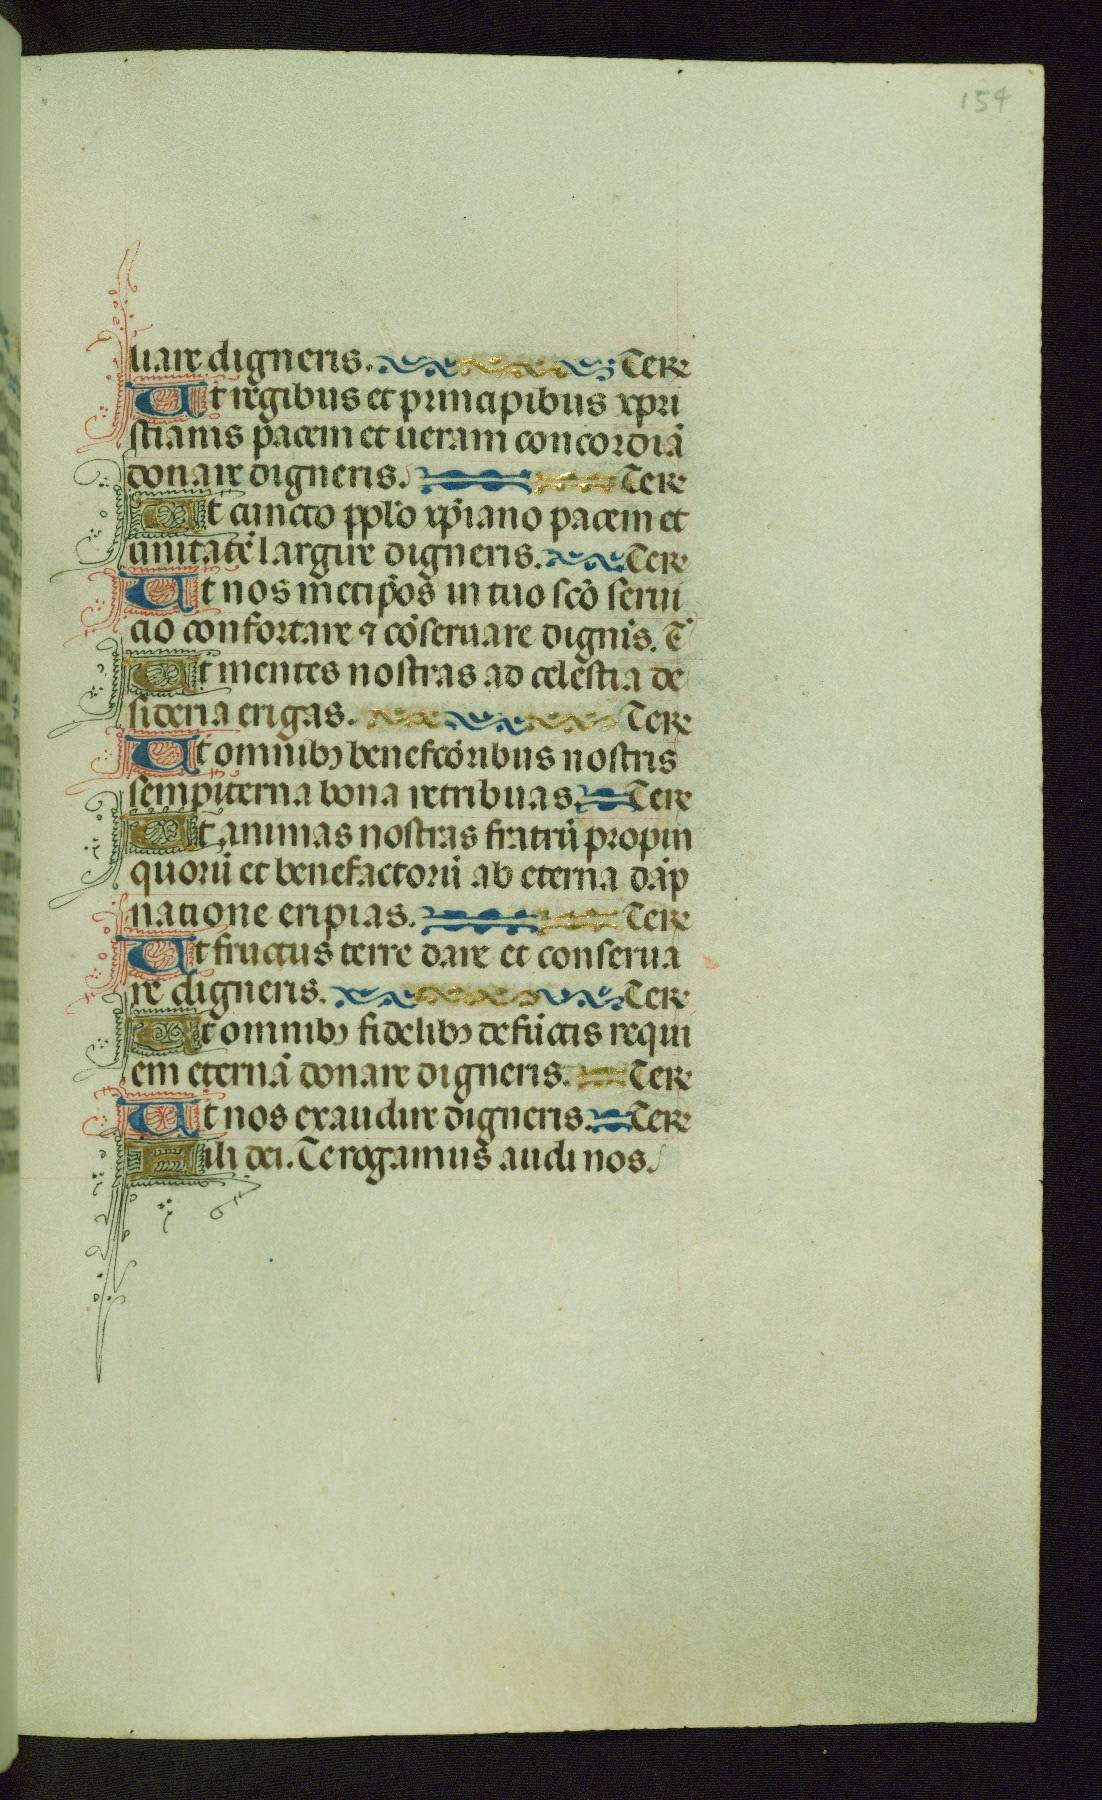 154
uare digneris. Te re
Ut regibus et principibus xpri
stianis pacem et ueram concordiā
donare digneris. Te re
Ut cuncto pplo xpiano pacem et
unitatē largire digneris. Te re
Ut nos metipōs in tuo scō serui
cio confortare ⁊ cōseruare dignis. T
Ut mentes nostras ad celestia de
sideria erigas. Te re
Ut omnibꝫ benefcōribus nostris
sempiterna bona retribuas. Te re
Ut animas nostras fratrū propin
quorū et benefactorū ab eterna dāp
natione eripias. Te re
Ut fructus terre dare et conserua
re digneris. Te re
Ut omnibꝫ fidelibꝫ defūctis requi
em eternā donare digneris. Te re
Ut nos exaudire digneris. Te re
Fili dei. Te rogamus audi nos.